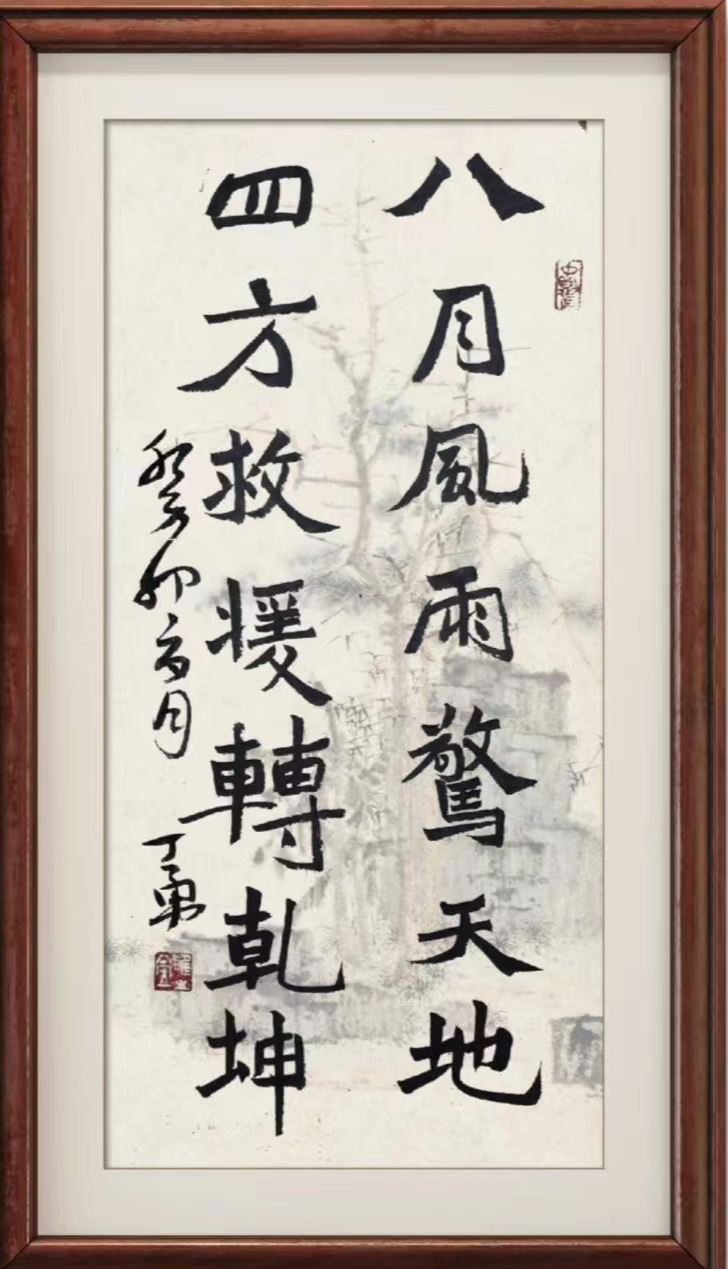 八月風雨驚天地
四方救援轉乾坤
癸卯六月
丁勇